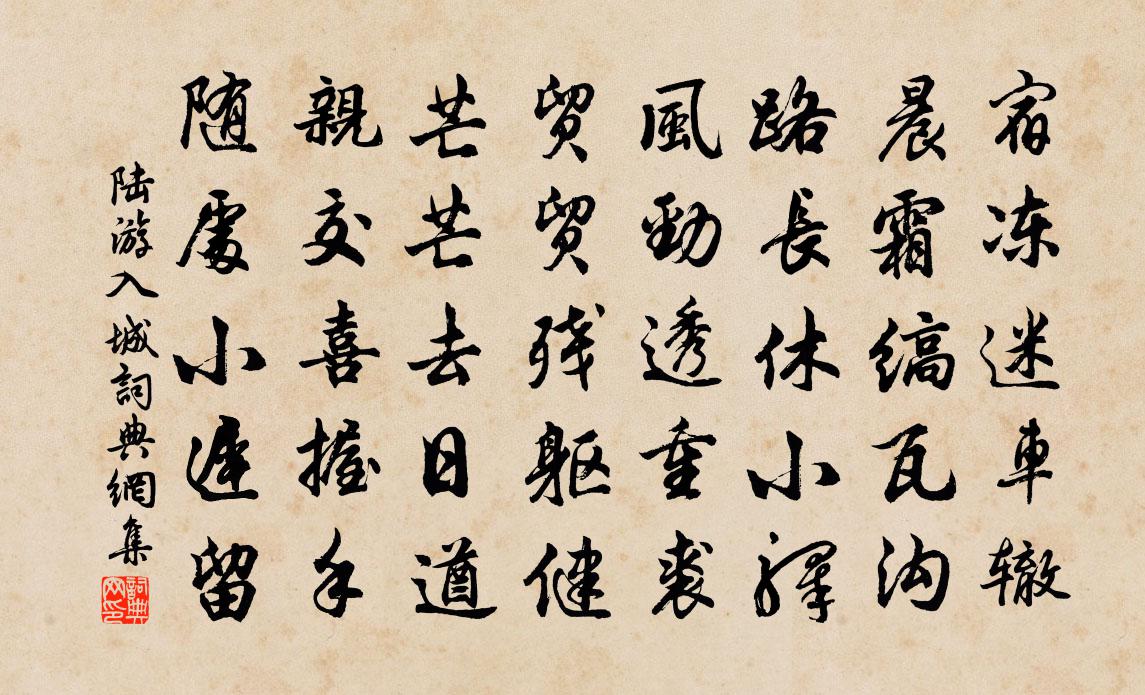 宿冻迷車辙
晨霜縞瓦沟
路長休小驛
風勁透重裘
貿貿残躯健
芒芒去日遒
親交喜握手
随處小遲留
陆游入城詞典網集
詞典网印